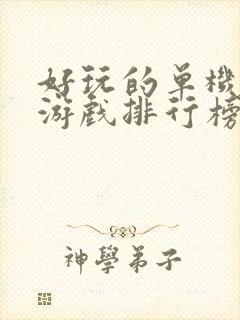 好玩的单機
游戲排行榜
神學弟子